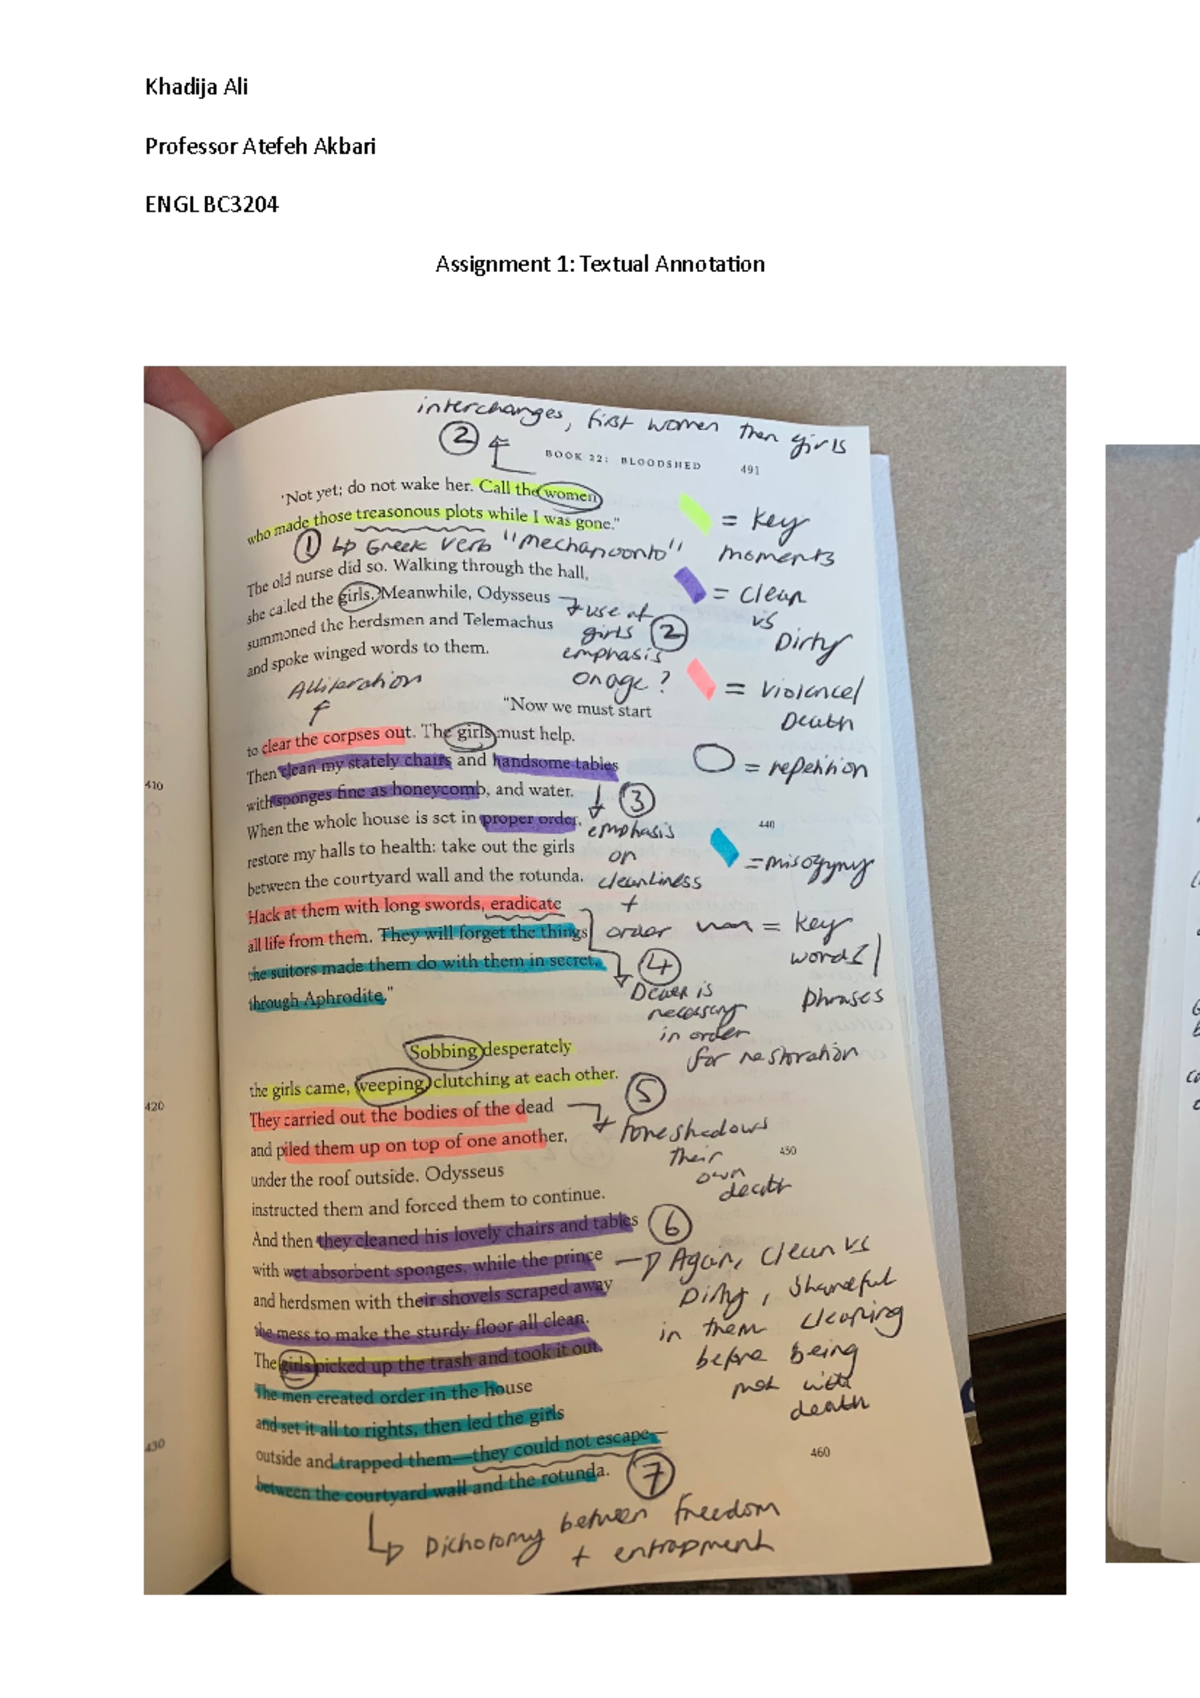 Khadija Ali
Professor Atefeh Akbari
ENGL BC3204
Assignment 1: Textual Annotation
interchanges, first women then girls
2
BOOK 22: BLOODSHED 491
"Not yet; do not wake her. Call the women
who made those treasonous plots while I was gone."
= Key moments
1 Greek verb "mechanoonto"
The old nurse did so. Walking through the hall,
she called the girls. Meanwhile, Odysseus
summoned the herdsmen and Telemachus
and spoke winged words to them.
use of girls 2
emphasis on age?
= clean vs Dirty
Alliteration
= violence/ Death
"Now we must start
to clear the corpses out. The girls must help.
Then clean my stately chairs and handsome tables
with sponges fine as honeycomb, and water.
When the whole house is set in proper order,
restore my halls to health: take out the girls
between the courtyard wall and the rotunda.
Hack at them with long swords, eradicate
all life from them. They will forget the things
the suitors made them do with them in secret,
through Aphrodite."
410
= repetition
3
emphasis on cleanliness + order
440
= misogyny
= key words/ phrases
4
is necessary in order for restoration
Sobbing desperately
the girls came, weeping, clutching at each other.
They carried out the bodies of the dead
and piled them up on top of one another,
under the roof outside. Odysseus
instructed them and forced them to continue.
And then they cleaned his lovely chairs and tables
with wet absorbent sponges, while the prince
and herdsmen with their shovels scraped away
the mess to make the sturdy floor all clean.
The girls picked up the trash and took it out.
The men created order in the house
and set it all to rights, then led the girls
outside and trapped them—they could not escape—
between the courtyard wall and the rotunda.
420
5
foreshadows their own death
450
6
Again, clean vs Dirty, shameful
in them cleaning before being
met with death
430
460
7
Dichotomy between freedom
+ entrapment